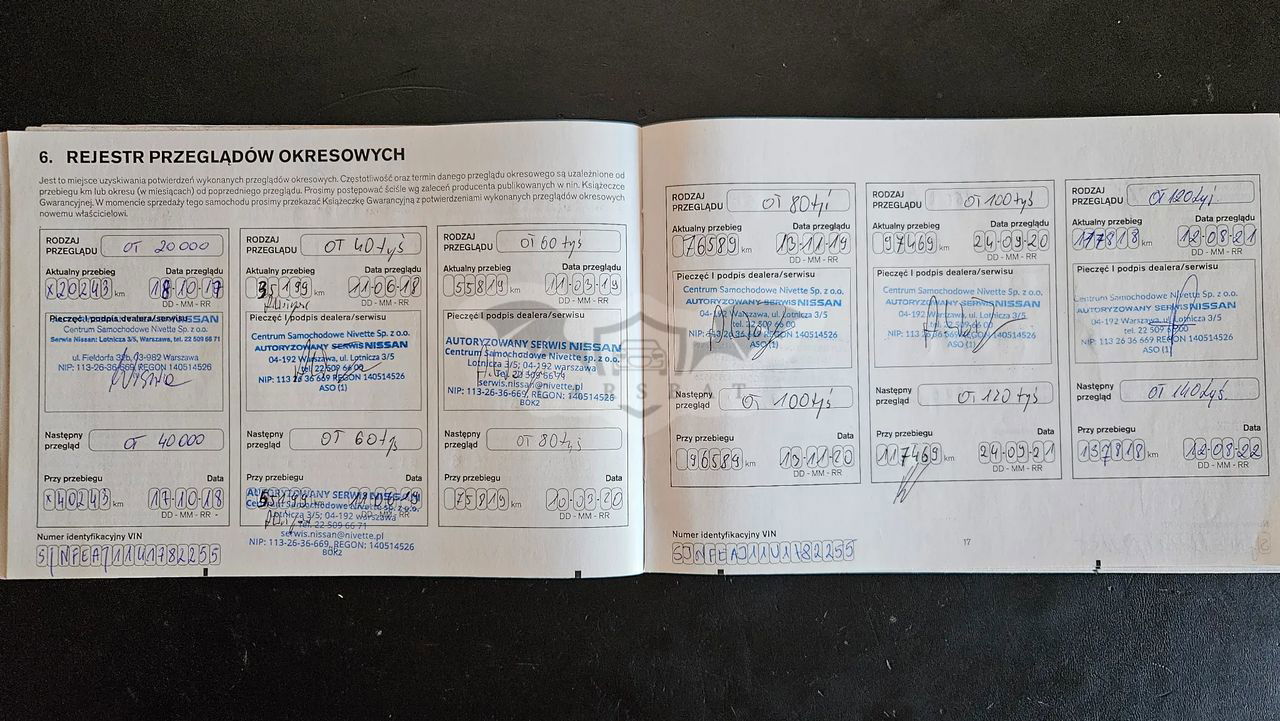 6. REJESTR PRZEGLĄDÓW OKRESOWYCH
Jest to miejsce uzyskiwania potwierdzeń wykonanych przeglądów okresowych. Częstotliwość oraz termin danego przeglądu okresowego są uzależnione od
przebiegu km lub okresu (w miesiącach) od poprzedniego przeglądu. Prosimy postępować ściśle wg zaleceń producenta publikowanych w nin. Książeczce
Gwarancyjnej. W momencie sprzedaży tego samochodu prosimy przekazać Książeczkę Gwarancyjną z potwierdzeniami wykonanych przeglądów okresowych
nowemu właścicielowi.
RODZAJ
PRZEGLĄDU OT 20 000
Aktualny przebieg Data przeglądu
x20243 km 18-10-17
DD - MM - RR
Pieczęć i podpis dealera/serwisu
Centrum Samochodowe Nivette Sp. z o.o.
Serwis Nissan: Lotnicza 3/5, Warszawa, tel. 22 509 66 71
ul. Fieldorfa 03-982 Warszawa
NIP: 113-26-36-669, REGON 140514526
Następny
przegląd OT 40 000
Przy przebiegu Data
x40243 km 17-10-18
DD - MM - RR
RODZAJ
PRZEGLĄDU OT 40 tyś
Aktualny przebieg Data przeglądu
35199 km 11-06-18
DD - MM - RR
Pieczęć i podpis dealera/serwisu
Centrum Samochodowe Nivette Sp. z o.o.
AUTORYZOWANY SERWIS NISSAN
04-192 Warszawa, ul. Lotnicza 3/5
tel. 22 509 66 00
NIP: 113 26 36 669 REGON 140514526
ASO (1)
Następny
przegląd OT 60 tyś
Przy przebiegu Data
km
DD - MM - RR
AUTORYZOWANY SERWIS NISSAN
Centrum Samochodowe Nivette Sp. z o.o.
Lotnicza 3/5; 04-192 warszawa
Tel. 22 509 66 71
serwis.nissan@nivette.pl
NIP: 113-26-36-669, REGON: 140514526
BOK2
RODZAJ
PRZEGLĄDU OT 60 tyś
Aktualny przebieg Data przeglądu
55819 km 11-03-19
DD - MM - RR
Pieczęć i podpis dealera/serwisu
AUTORYZOWANY SERWIS NISSAN
Centrum Samochodowe Nivette Sp. z o.o.
Lotnicza 3/5; 04-192 warszawa
Tel. 22 509 66 71
serwis.nissan@nivette.pl
NIP: 113-26-36-669, REGON: 140514526
BOK2
Następny
przegląd OT 80 tyś
Przy przebiegu Data
75819 km 10-03-20
DD - MM - RR
Numer identyfikacyjny VIN
SJNFEAJ11U1782255
RODZAJ
PRZEGLĄDU OT 80 tyś
Aktualny przebieg Data przeglądu
76589 km 13-11-19
DD - MM - RR
Pieczęć i podpis dealera/serwisu
Centrum Samochodowe Nivette Sp. z o.o.
AUTORYZOWANY SERWIS NISSAN
04-192 Warszawa, ul. Lotnicza 3/5
tel. 22 509 66 00
NIP: 113 26 36 669 REGON 140514526
ASO (1)
Następny
przegląd OT 100 tyś
Przy przebiegu Data
96589 km 13-11-20
DD - MM - RR
RODZAJ
PRZEGLĄDU OT 100 tyś
Aktualny przebieg Data przeglądu
97469 km 24-09-20
DD - MM - RR
Pieczęć i podpis dealera/serwisu
Centrum Samochodowe Nivette Sp. z o.o.
AUTORYZOWANY SERWIS NISSAN
04-192 Warszawa, ul. Lotnicza 3/5
tel. 22 509 66 00
NIP: 113 26 36 669 REGON 140514526
ASO (1)
Następny
przegląd OT 120 tyś
Przy przebiegu Data
117469 km 24-09-21
DD - MM - RR
RODZAJ
PRZEGLĄDU OT 120 tyś.
Aktualny przebieg Data przeglądu
117818 km 12-08-21
DD - MM - RR
Pieczęć i podpis dealera/serwisu
Centrum Samochodowe Nivette Sp. z o.o.
AUTORYZOWANY SERWIS NISSAN
04-192 Warszawa ul. Lotnicza 3/5
tel. 22 507 66 00
NIP: 113 26 36 669 REGON 140514526
ASO (1)
Następny
przegląd OT 140 tyś.
Przy przebiegu Data
137818 km 12-08-22
DD - MM - RR
Numer identyfikacyjny VIN
SJNFEAJ11U1782255
17